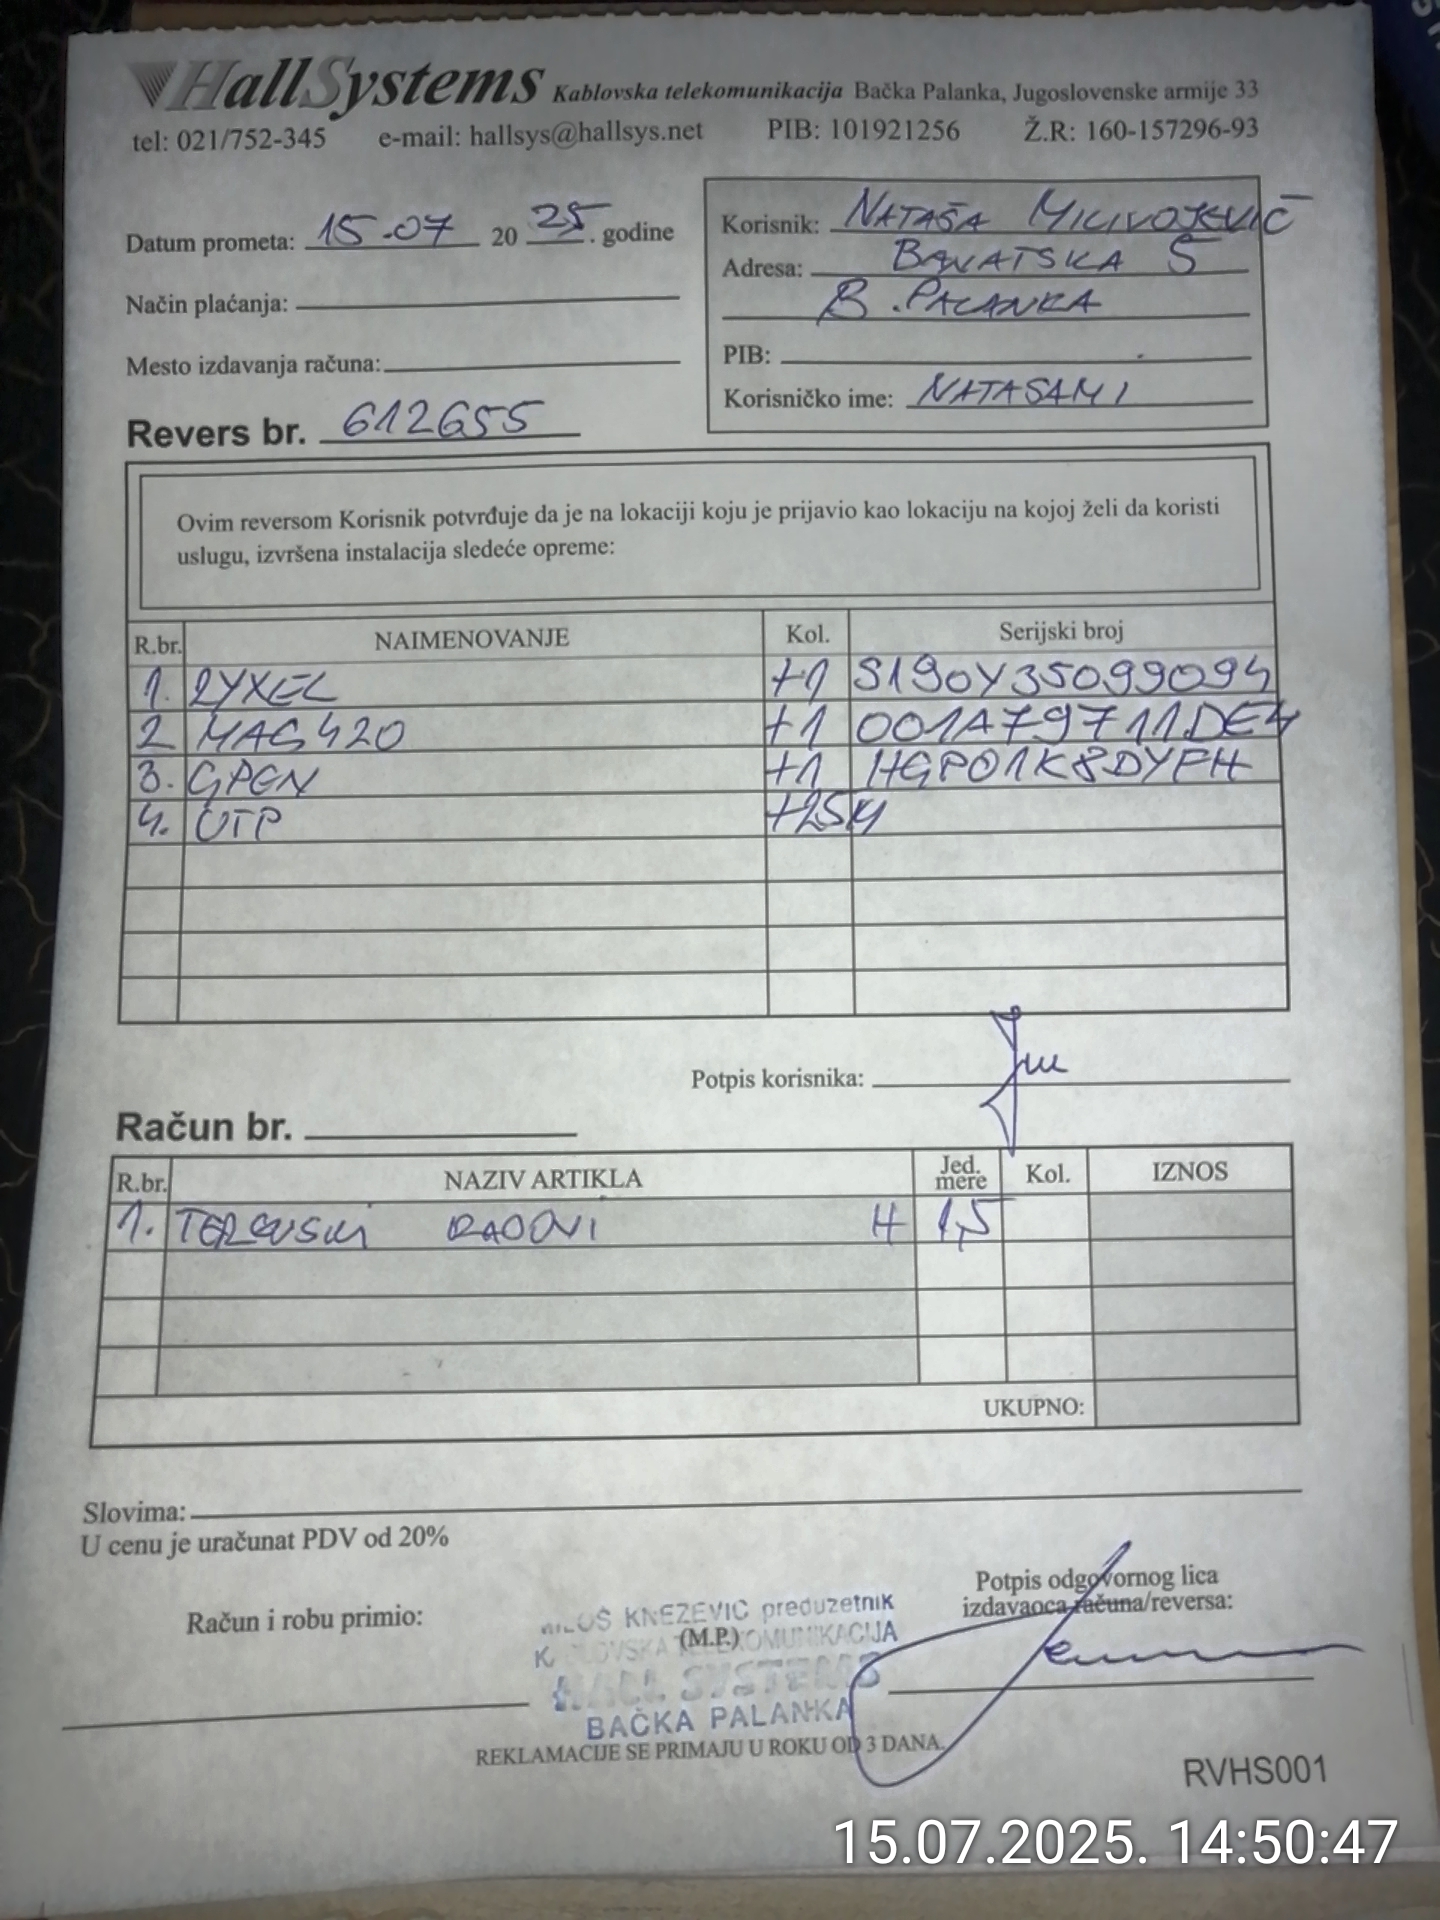 HallSystems Kablovska telekomunikacija Bačka Palanka, Jugoslovenske armije 33
tel: 021/752-345 e-mail: hallsys@hallsys.net PIB: 101921256 Ž.R: 160-157296-93
Datum prometa: 15.07 20 25. godine
Način plaćanja:
Mesto izdavanja računa:
Revers br. 612655
Korisnik: NATAŠA MILIVOJEVIĆ
Adresa: BANATSKA 5
B. PALANKA
PIB:
Korisničko ime: NATASAMI
Ovim reversom Korisnik potvrđuje da je na lokaciji koju je prijavio kao lokaciju na kojoj želi da koristi
uslugu, izvršena instalacija sledeće opreme:
R.br. NAIMENOVANJE Kol. Serijski broj
1. ZYXEL +1 S190Y35099094
2 MAG420 +1 001A79711DE4
3. GPON +1 HGP01K8DYFH
4. UTP +25M
Potpis korisnika:
Račun br.
R.br. NAZIV ARTIKLA Jed. mere Kol. IZNOS
1. TERENSKI RADOVI H 1,5
UKUPNO:
Slovima:
U cenu je uračunat PDV od 20%
Račun i robu primio:
MILOŠ KNEŽEVIĆ preduzetnik
(M.P.)
KABLOVSKA TELEKOMUNIKACIJA
HALL SYSTEMS
BAČKA PALANKA
Potpis odgovornog lica
izdavaoca računa/reversa:
REKLAMACIJE SE PRIMAJU U ROKU OD 3 DANA.
RVHS001
15.07.2025. 14:50:47